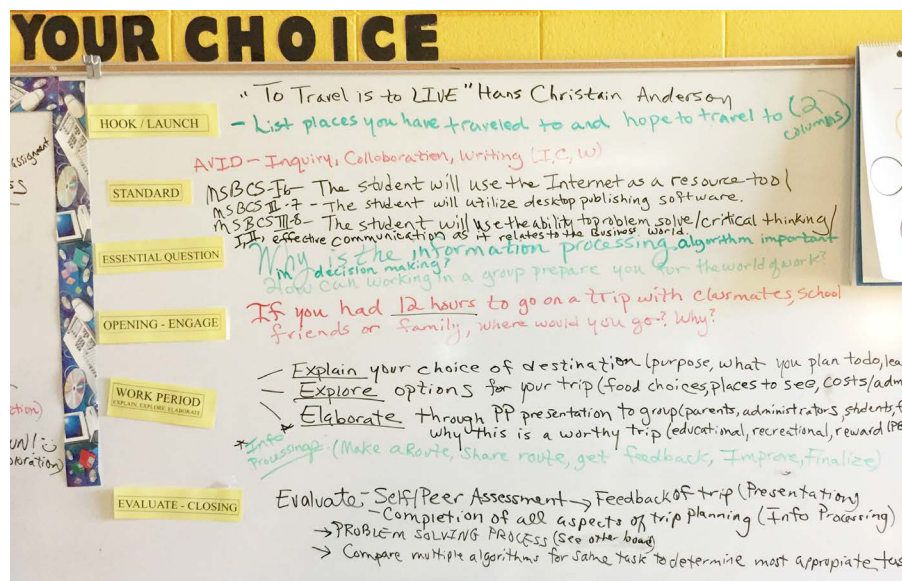 YOUR CHOICE
"To Travel is to LIVE" Hans Christain Anderson
HOOK / LAUNCH
- List places you have traveled to and hope to travel to (2 columns)
AVID - Inquiry, Colloboration, Writing (I, C, W)
STANDARD
MSBCS-I-6- The student will use the Internet as a resource tool
MSBCS II-7 - The student will utilize desktop publishing software.
MSBCS III-8- The student will use the ability to problem solve/critical thinking/
effective communication as it relates to the Business world.
ESSENTIAL QUESTION
Why is the information processing algorithm important
in decision making?
How can working in a group prepare you for the world of work?
OPENING - ENGAGE
If you had 12 hours to go on a trip with classmates, school
friends or family, where would you go? Why?
WORK PERIOD
EXPLAIN, EXPLORE, ELABORATE
- Explain your choice of destination (purpose, what you plan to do, lea
- Explore options for your trip (food choices, places to see, costs/adm
- Elaborate through PP presentation to group (parents, administrators, students, f
why this is a worthy trip (educational, recreational, reward (PB
* Info Processing: (Make a Route, share route, get feedback, Improve, Finalize)
EVALUATE - CLOSING
Evaluate - Self/Peer Assessment → Feedback of trip (Presentation)
- Completion of all aspects of trip planning (Info Processing)
→ PROBLEM SOLVING PROCESS (See other board)
→ Compare multiple algorithms for same task to determine most appropiate tas
assignment